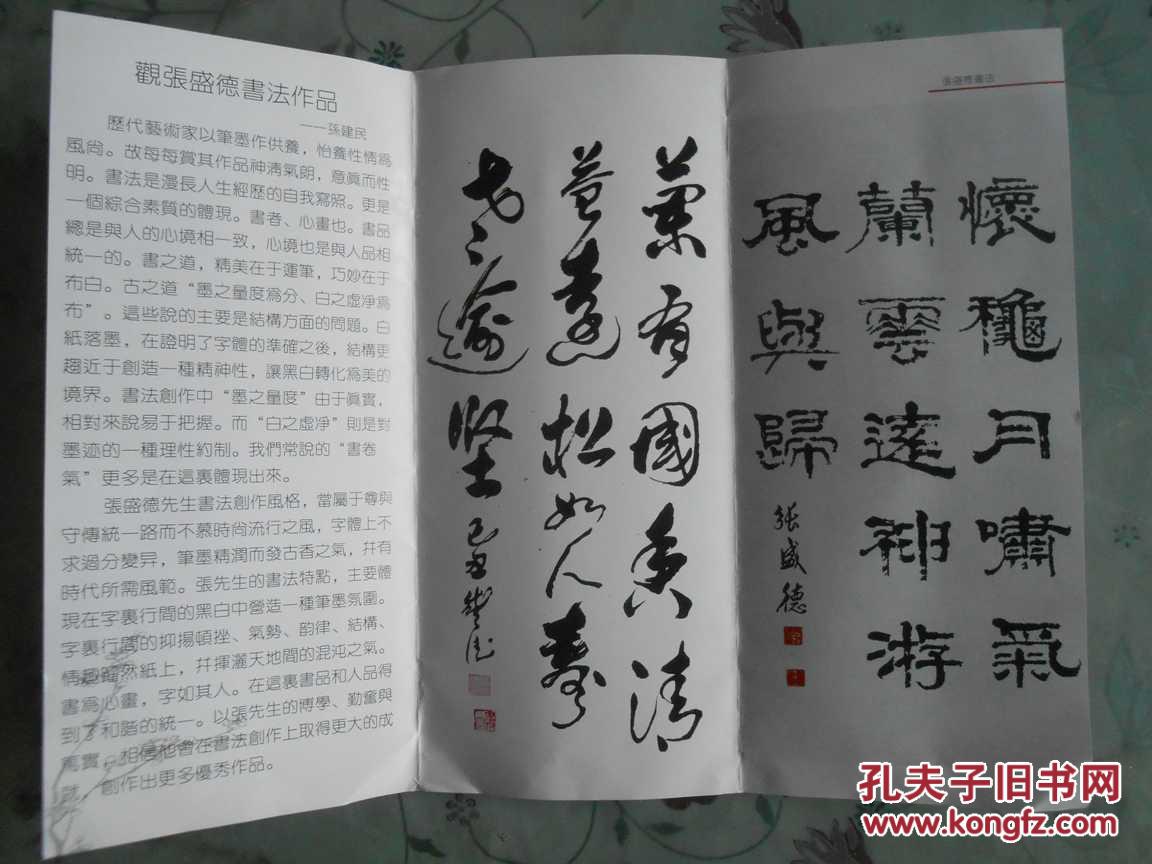 觀張盛德書法作品
——孫建民
歷代藝術家以筆墨作供養，怡養性情爲
風尚。故每每賞其作品神清氣朗，意眞而性
明。書法是漫長人生經歷的自我寫照。更是
一個綜合素質的體現。書者、心畫也。書品
總是與人的心境相一致，心境也是與人品相
統一的。書之道，精美在于運筆，巧妙在于
布白。古之道“墨之量度爲分、白之虛淨爲
布”。這些說的主要是結構方面的問題。白
紙落墨，在證明了字體的準確之後，結構更
趨近于創造一種精神性，讓黑白轉化爲美的
境界。書法創作中“墨之量度”由于眞實，
相對來說易于把握。而“白之虛淨”則是對
墨迹的一種理性約制。我們常說的“書卷
氣”更多是在這裏體現出來。
張盛德先生書法創作風格，當屬于尊與
守傳統一路而不慕時尚流行之風，字體上不
求過分變异，筆墨精潤而發古香之氣，幷有
時代所需風範。張先生的書法特點，主要體
現在字裏行間的黑白中營造一種筆墨氛圍。
字裏行間的抑揚頓挫、氣勢、韵律、結構、
情趣躍然紙上，幷揮灑天地間的混沌之氣。
書爲心畫，字如其人。在這裏書品和人品得
到了和諧的統一。以張先生的博學、勤奮與
篤實，相信他會在書法創作上取得更大的成
就，創作出更多優秀作品。
蘭有國香清
益遠松如人壽
老逾堅 己丑 盛德
張盛德書法
懷穐月嘯氣
蘭雲達神游
風與歸 張盛德
孔夫子旧书网
www.kongfz.com